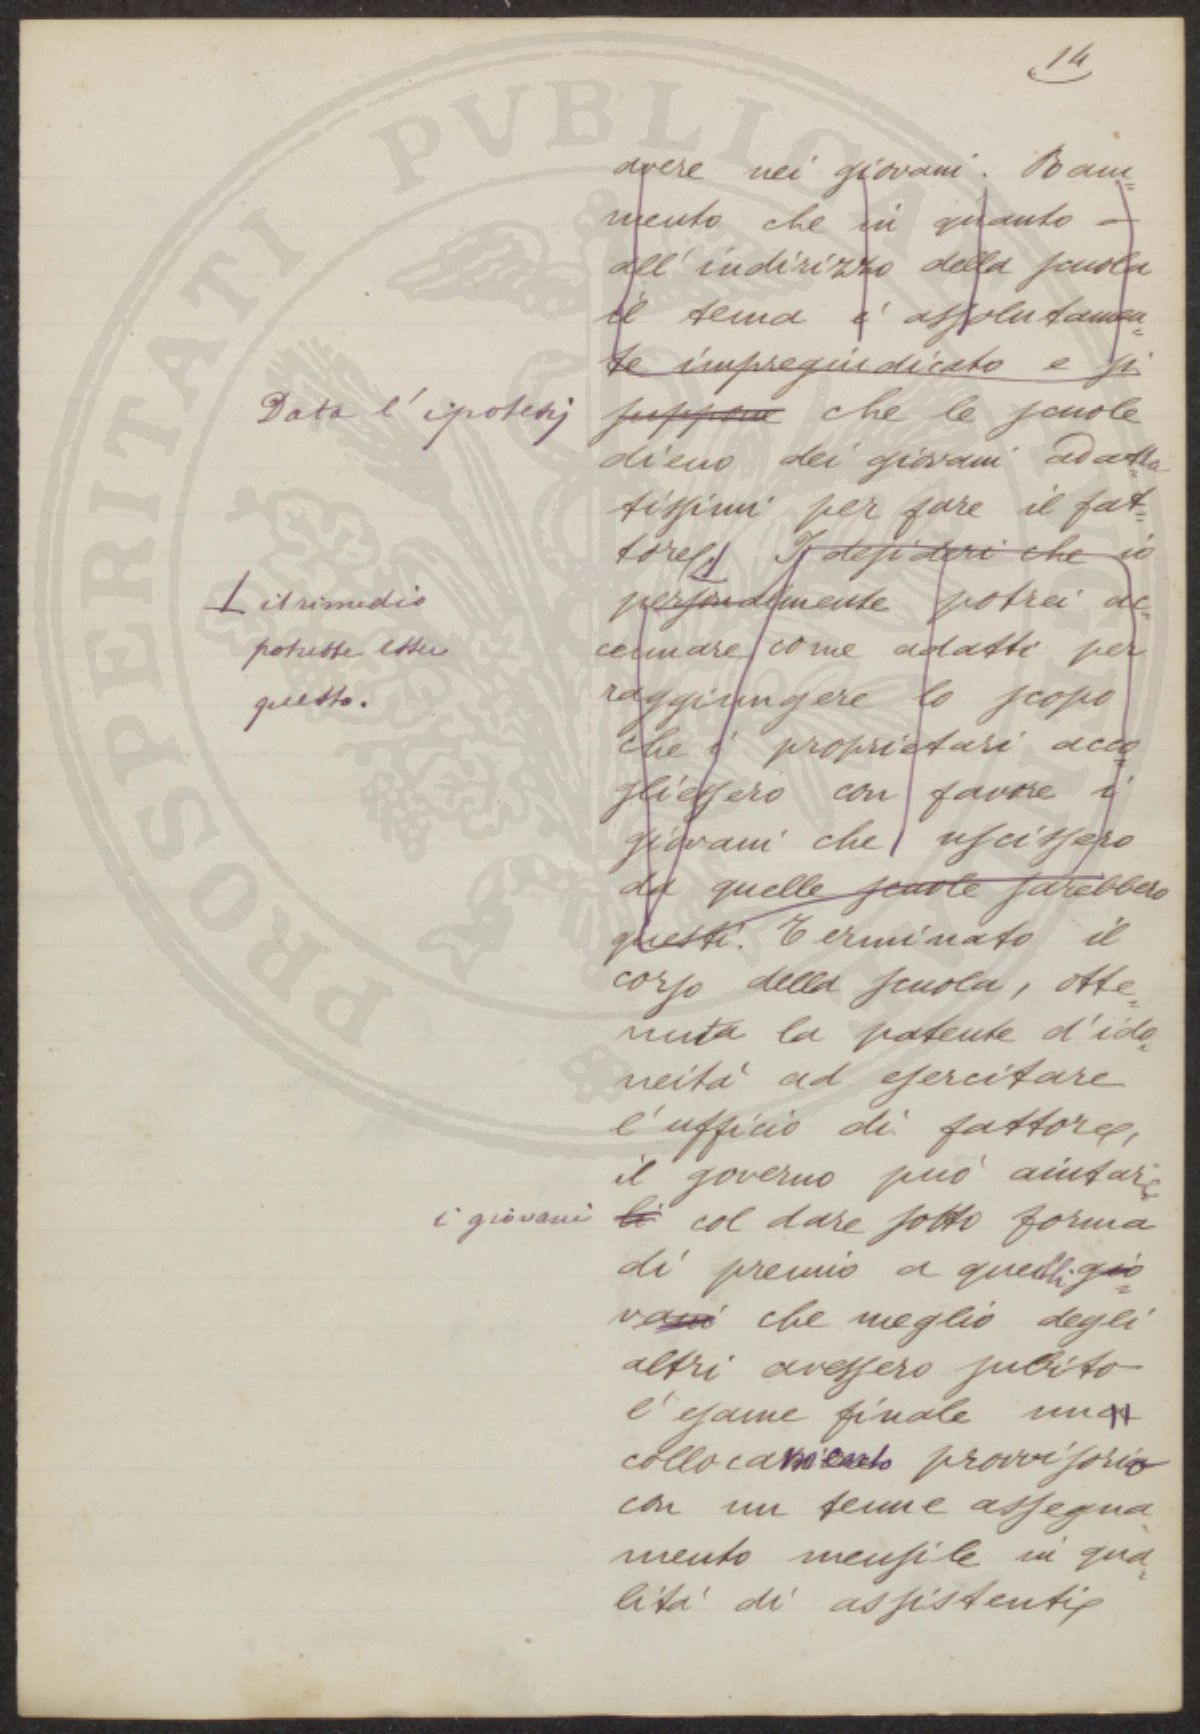 14
avere nei giovani. Ram=
mento che in quanto
all'indirizzo della scuola
il tema è assolutamen=
te impregiudicato e si
Data l'ipotesi suppone che le scuole
dieno dei giovani adatta=
tissimi per fare il fat=
tore I desideri che io
⊥ il rimedio
potrebbe esser
questo.
personalmente potrei ac=
cennare come adatti per
raggiungere lo scopo
che i proprietari acco=
gliessero con favore i
giovani che uscissero
da quelle scuole sarebbero
questi. Terminato il
corso della scuola, otte=
nuta la patente d'ido=
neità ad esercitare
l'ufficio di fattore,
il governo può aiutare
i giovani li col dare sotto forma
di premio a quelli gio=
vani che meglio degli
altri avessero subito
l'esame finale un
collocamento provvisorio
con un tenue assegna=
mento mensile in qua=
lità di assistenti
PROSPERITATI PUBLICAE